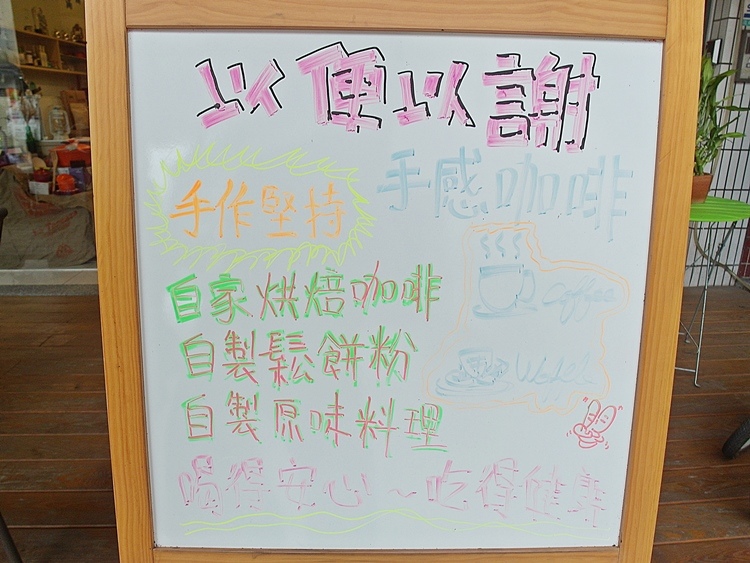 以便以謝
手感咖啡
手作堅持
coffee
自家烘焙咖啡
自製鬆餅粉
自製原味料理
喝得安心~吃得健康